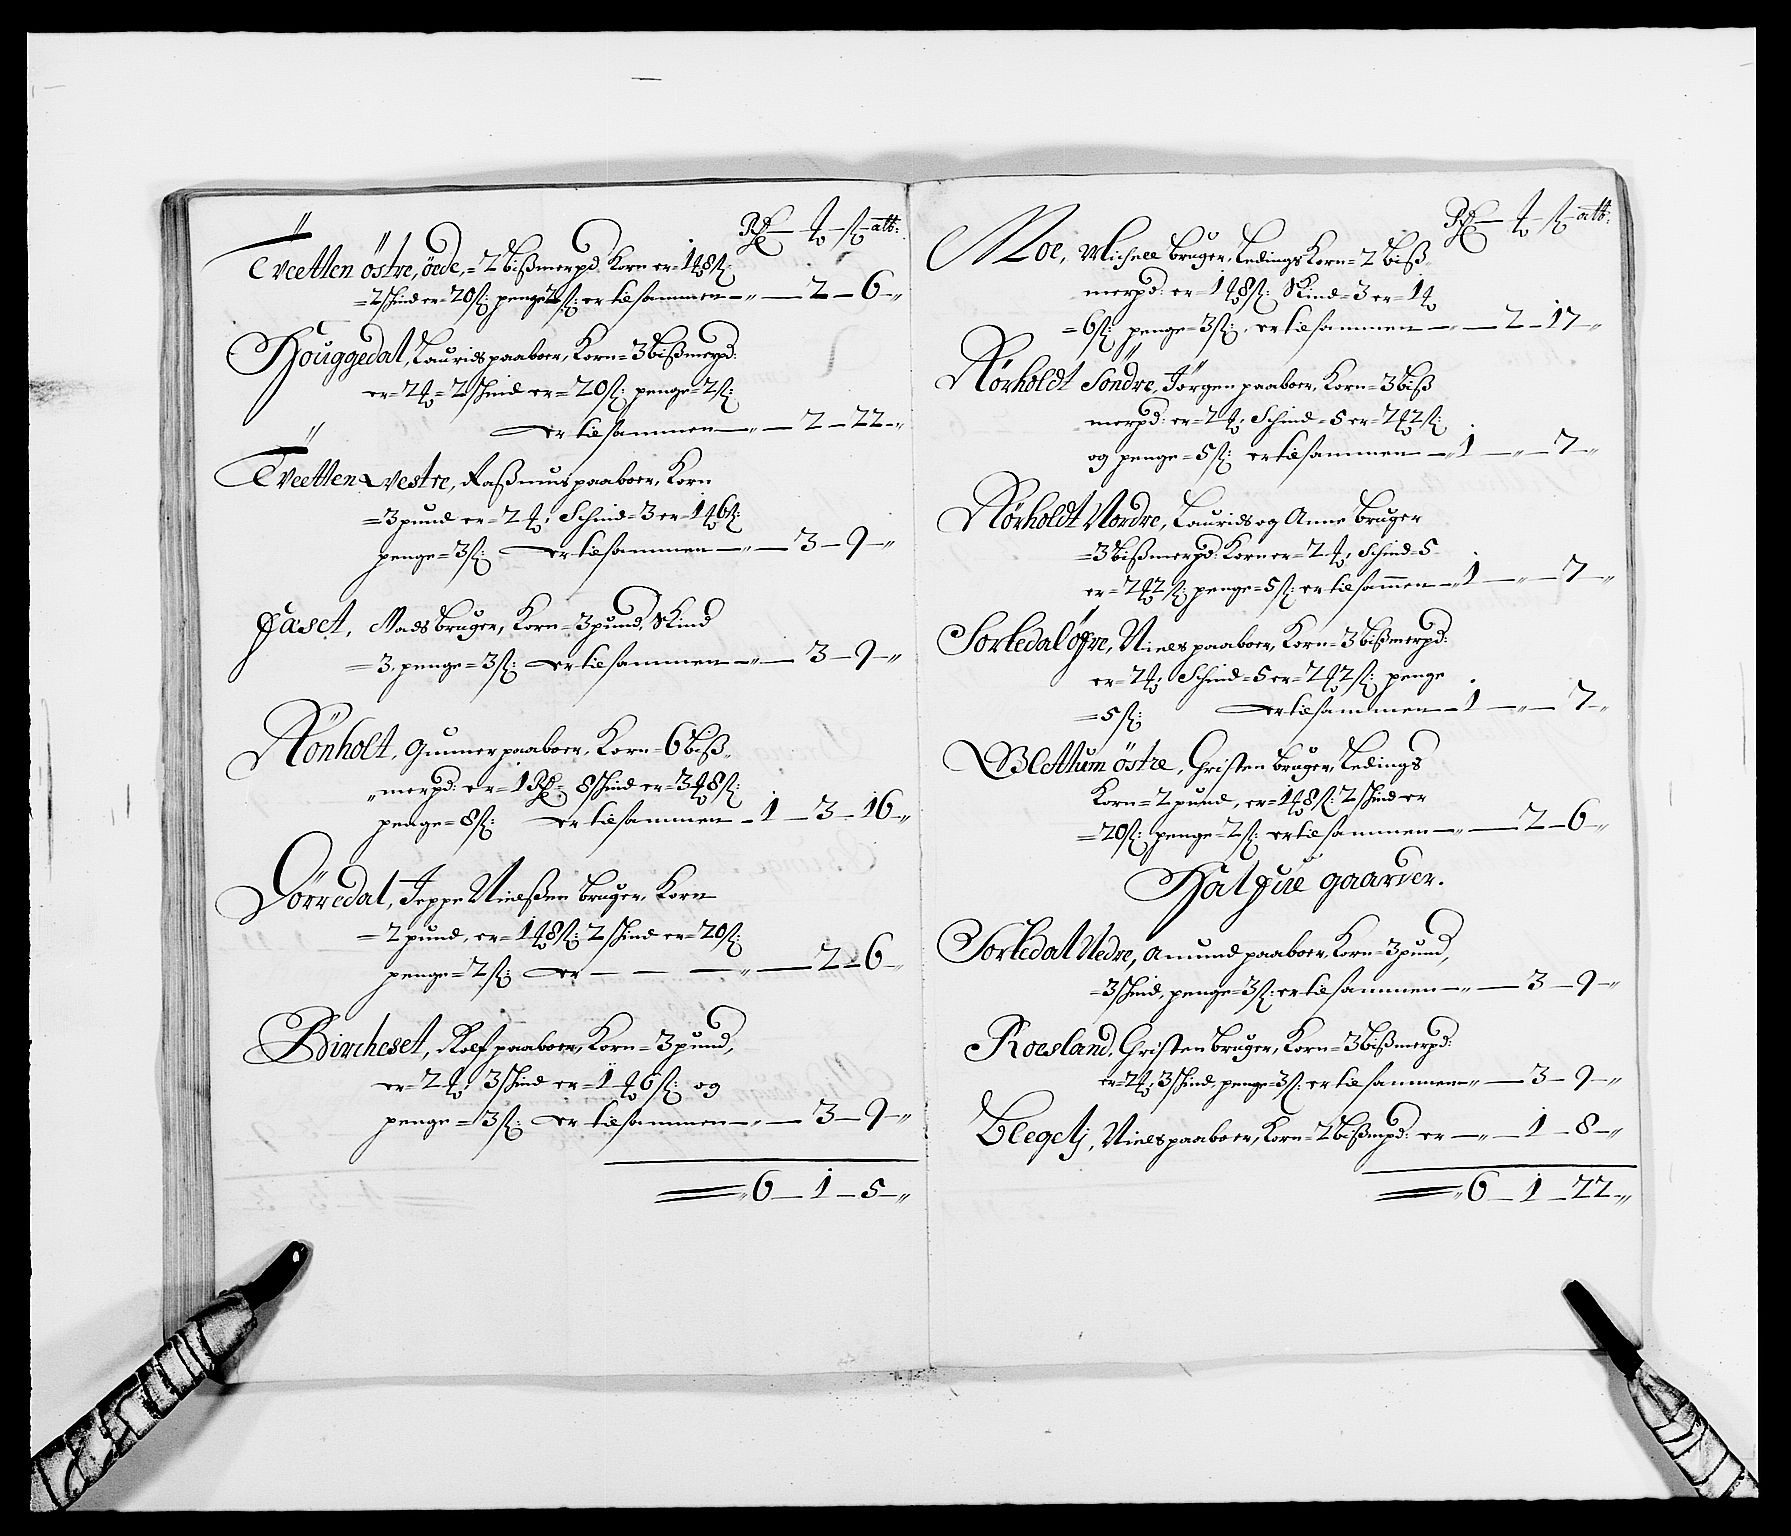 Rdr — ort — ß — alb:
Tveetten östre, öede, = 2 bißmerpd Korn er = 1 ort 8 ß:
= 2 skind er = 20 ß: penge 2 ß: er tilsammen — „ — 2 — 6 — „
Houggedal, Laurids paaboer, Korn = 3 bißmerpd:
er = 2 ort = 2 skind er = 20 ß: penge = 2 ß:
er tilsammen — „ — 2 — 22 — „
Tveetten vestre, Raßmus paaboer, Korn
= 3 pund er = 2 ort, Schind = 3 er = 1 ort 6 ß:
penge = 3 ß: er tilsammen — „ — 3 — 9 — „
Faset, Mads bruger, Korn = 3 pund, Skind
= 3, penge = 3 ß: er tilsammen — „ — 3 — 9 — „
Rönholt, Gunner paaboer, Korn = 6 biß„
„merpd: er = 1 Rdr = 8 skind er = 3 ort 8 ß:
penge = 8 ß: er tilsammen — 1 — 3 — 16 — „
Dörredal, Jeppe Nielßen bruger, Korn
= 2 pund, er = 1 ort 8 ß: 2 skind er = 20 ß:
penge = 2 ß: er — — — „ — 2 — 6 — „
Bircheset, Rolf paaboer, Korn = 3 pund,
er = 2 ort, 3 skind er = 1 ort 6 ß: og
penge = 3 ß: er tilsammen — „ — 3 — 9 — „
„ 6 — 1 — 5 — „
Rdr — ort — ß — alb:
Moe, Michell bruger, Ledings Korn = 2 biß„
merpd: er = 1 ort 8 ß: Skind = 3 er = 1 ort
= 6 ß: penge = 3 ß: er tilsammen — „ — 2 — 17 — „
Nörholdt Söndre, Jörgen paaboer, Korn = 3 biß
merpd: er = 2 ort, Schind = 5 er = 2 ort 2 ß:
og penge = 5 ß: er tilsammen — 1 — „ — 7 — „
Nörholdt Nordre, Laurids og Anne bruger
= 3 bißmerpd: Korn er = 2 ort, Schind = 5
er = 2 ort 2 ß: penge = 5 ß: er tilsammen — 1 — „ — 7 — „
Sorkedal öfre, Niels paaboer, Korn = 3 bißmerpd:
er = 2 ort, Schind = 5 er = 2 ort 2 ß: penge
= 5 ß: er tilsammen — 1 — „ — 7 — „
Blettum östre, Christen bruger, Ledings
Korn = 2 pund, er = 1 ort 8 ß: 2 skind er
= 20 ß: penge = 2 ß: er tilsammen — „ — 2 — 6 — „
Halfue gaarder.
Sorkedal Nedre, Amund paaboer, Korn = 3 pund,
= 3 skind, penge = 3 ß: er tilsammen — „ — 3 — 9 — „
Roesland, Christen bruger, Korn = 3 bißmerpd:
er = 2 ort, 3 skind, penge = 3 ß: er tilsammen — „ — 3 — 9 — „
Niels paaboer, Korn = 2 bißmpd: er — „ — 1 — 8 — „
„ 6 — 1 — 22 — „